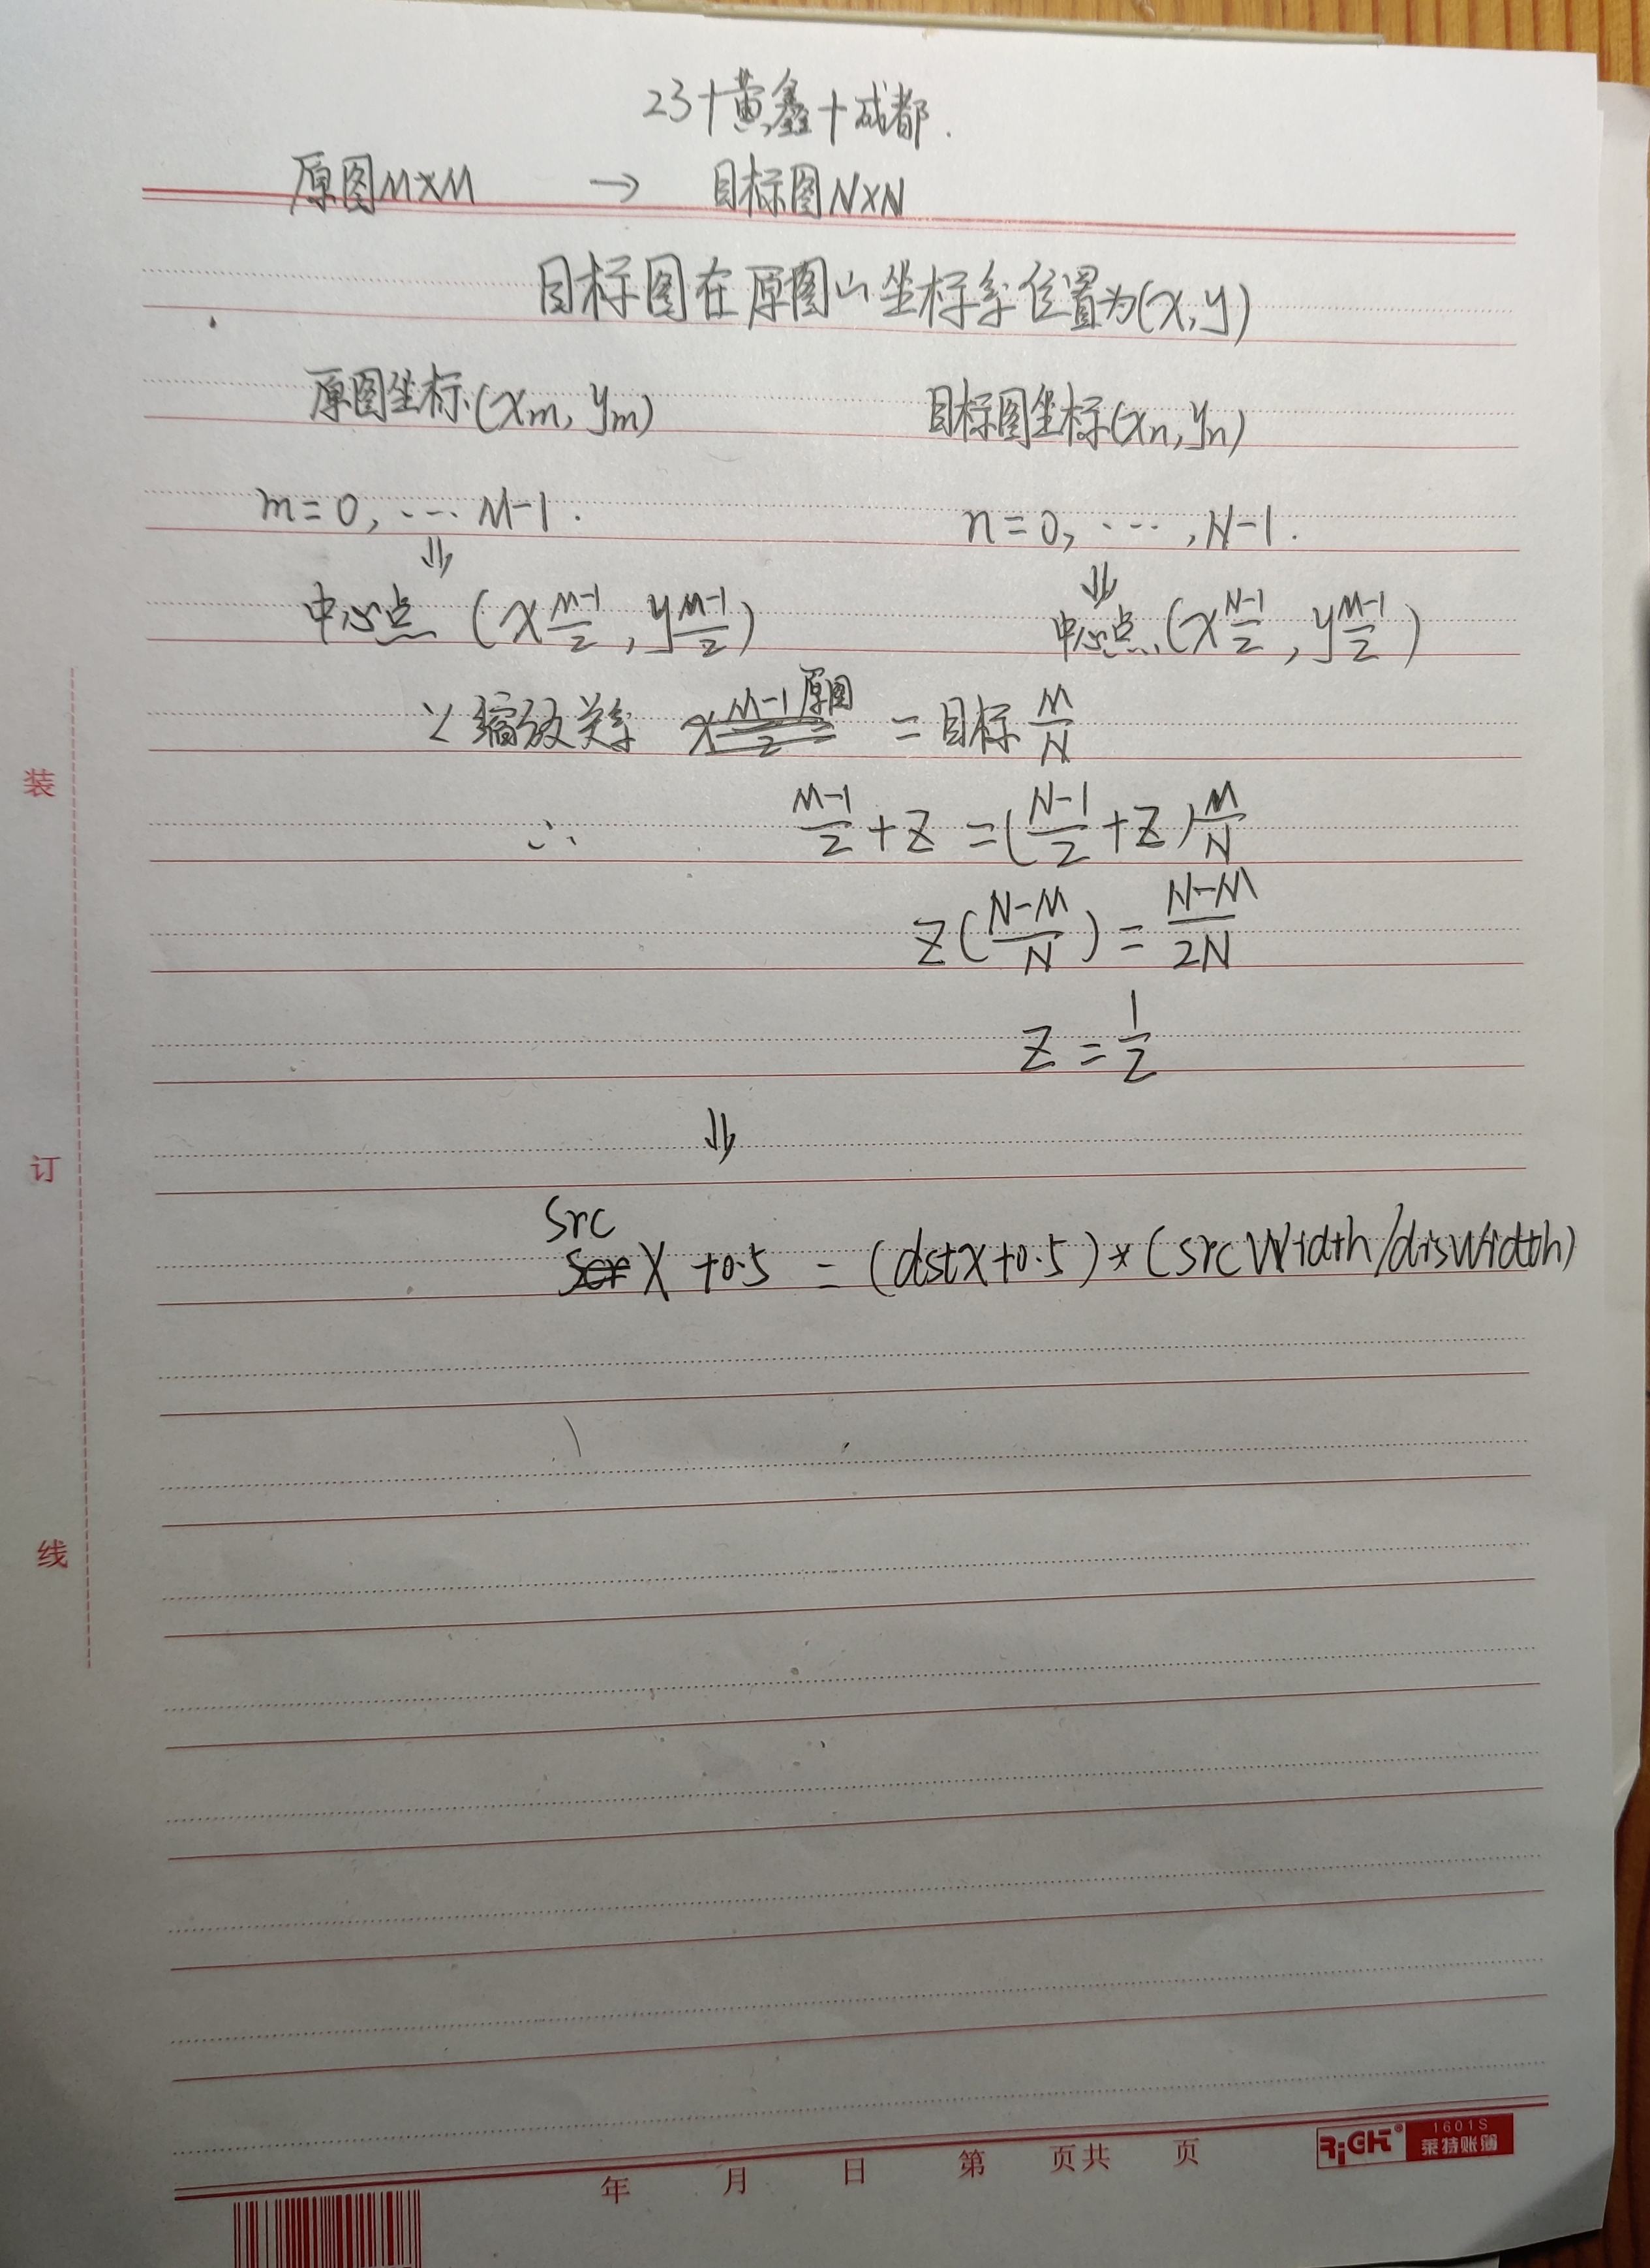 23+黄鑫+成都.
原图M×M → 目标图N×N
目标图在原图山坐标系位置为(x,y)
原图坐标(xm, ym) 目标图坐标(xn, yn)
m=0, ... M-1. n=0, ..., N-1.
⇓ ⇓
中心点 (x (M-1)/2, y (M-1)/2) 中心点 (x (N-1)/2, y (M-1)/2)
∵ 缩放关系 原图 = 目标 M/N
∴ (M-1)/2 + Z = ((N-1)/2 + Z) M/N
Z((N-M)/N) = (N-M)/2N
Z = 1/2
⇓
Src
X +0.5 = (dstX+0.5)*(srcWidth/disWidth)
装
订
线
年 月 日 第 页共 页
RiGHT® 1601S
莱特账簿